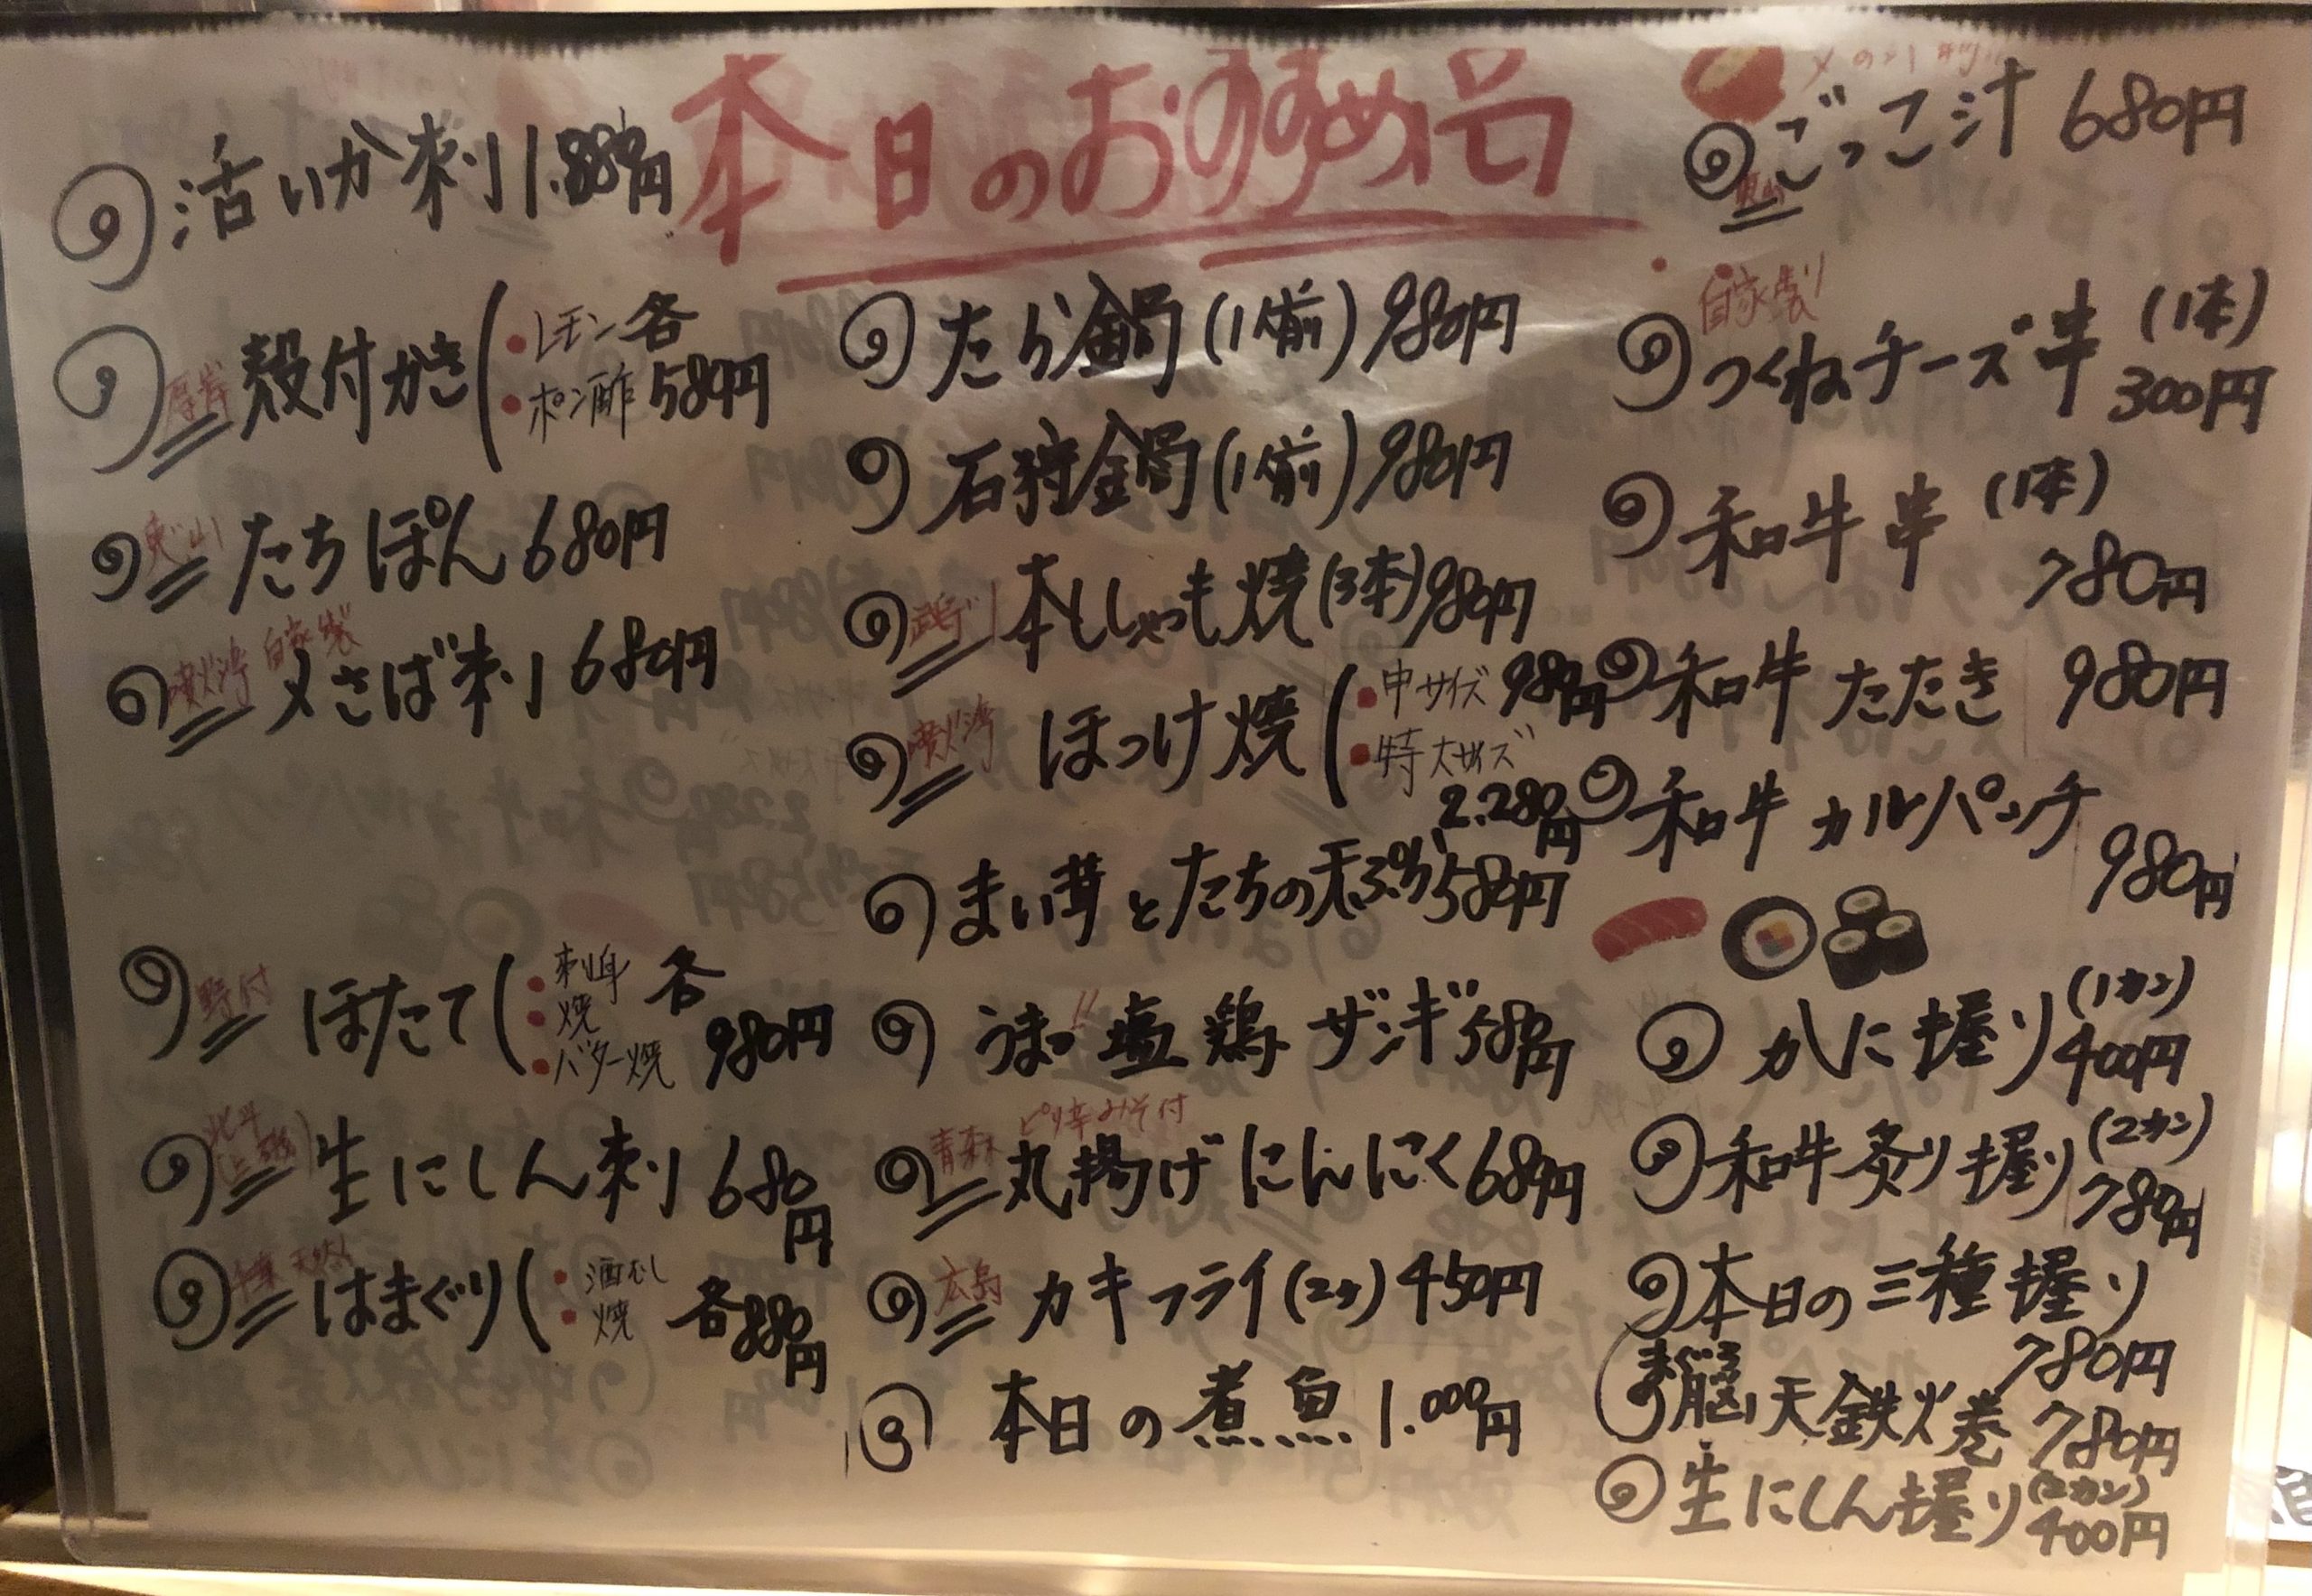 本日のおすすめ品
活いか刺 1.880円
厚岸 殻付かき
・レモン
・ポン酢
各580円
恵山 たちぽん 680円
噴火湾 自家製
〆さば刺 680円
野付 ほたて
・刺身
・焼
・バター焼
各980円
北斗(上磯) 生にしん刺 680円
千葉 天然 はまぐり
・酒むし
・焼
各880円
たら鍋(1人前) 980円
石狩鍋(1人前) 980円
本ししゃも焼(3本) 980円
噴火湾 ほっけ焼
・中サイズ 980円
・特大サイズ 2.280円
まい茸とたちの天ぷら 580円
うまっ!!塩鶏ザンギ 580円
青森 ピリ辛みそ付
丸揚げにんにく 680円
広島 カキフライ(2ヶ) 450円
本日の煮魚 1.000円
恵山 ごっこ汁 680円
自家製
つくねチーズ串(1本) 300円
和牛串(1本) 780円
和牛たたき 980円
和牛カルパッチ 980円
かに握り(1カン) 400円
和牛炙り握り(2カン) 780円
本日の三種握り 780円
まぐろ脳天鉄火巻 780円
生にしん握り(2カン) 400円